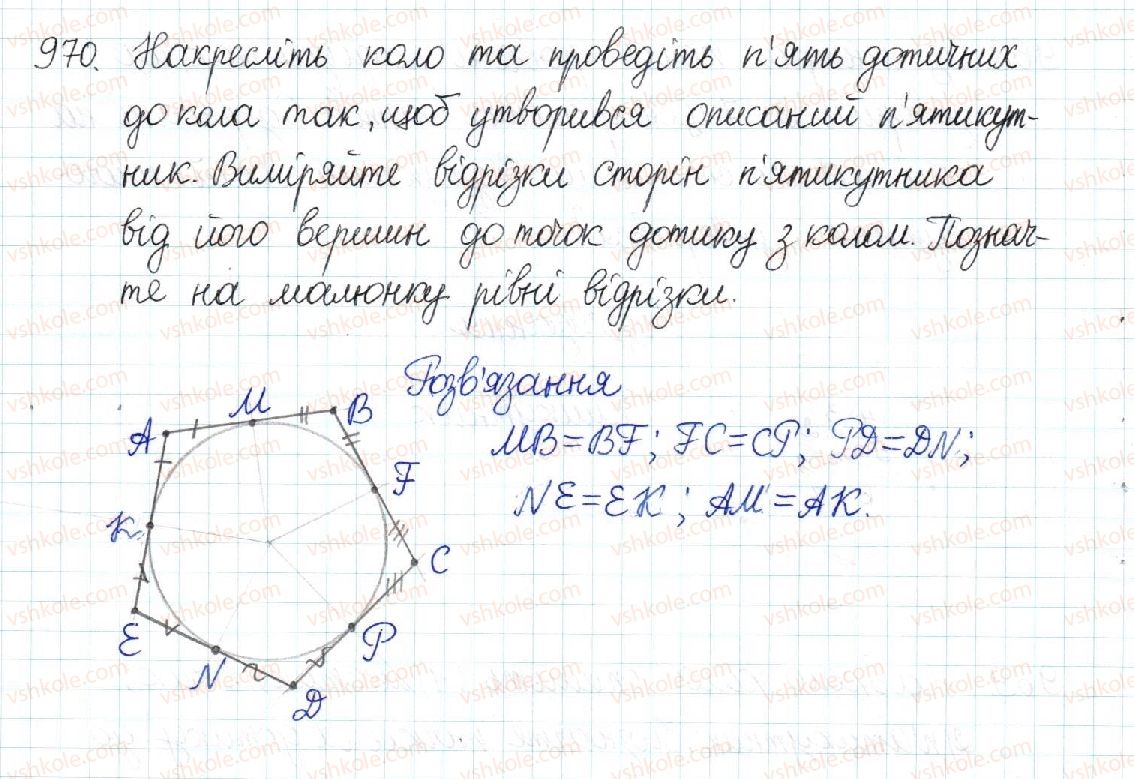 970. Накресліть коло та проведіть п'ять дотичних
до кола так, щоб утворився описаний п'ятикут-
ник. Виміряйте відрізки сторін п'ятикутника
від його вершин до точок дотику з колом. Познач-
те на малюнку рівні відрізки.
Розв'язання
MB = BF; FC = CP; PD = DN;
NE = EK; AM = AK.
A M B
F
K
C
E
N
D
P
vshkole.com